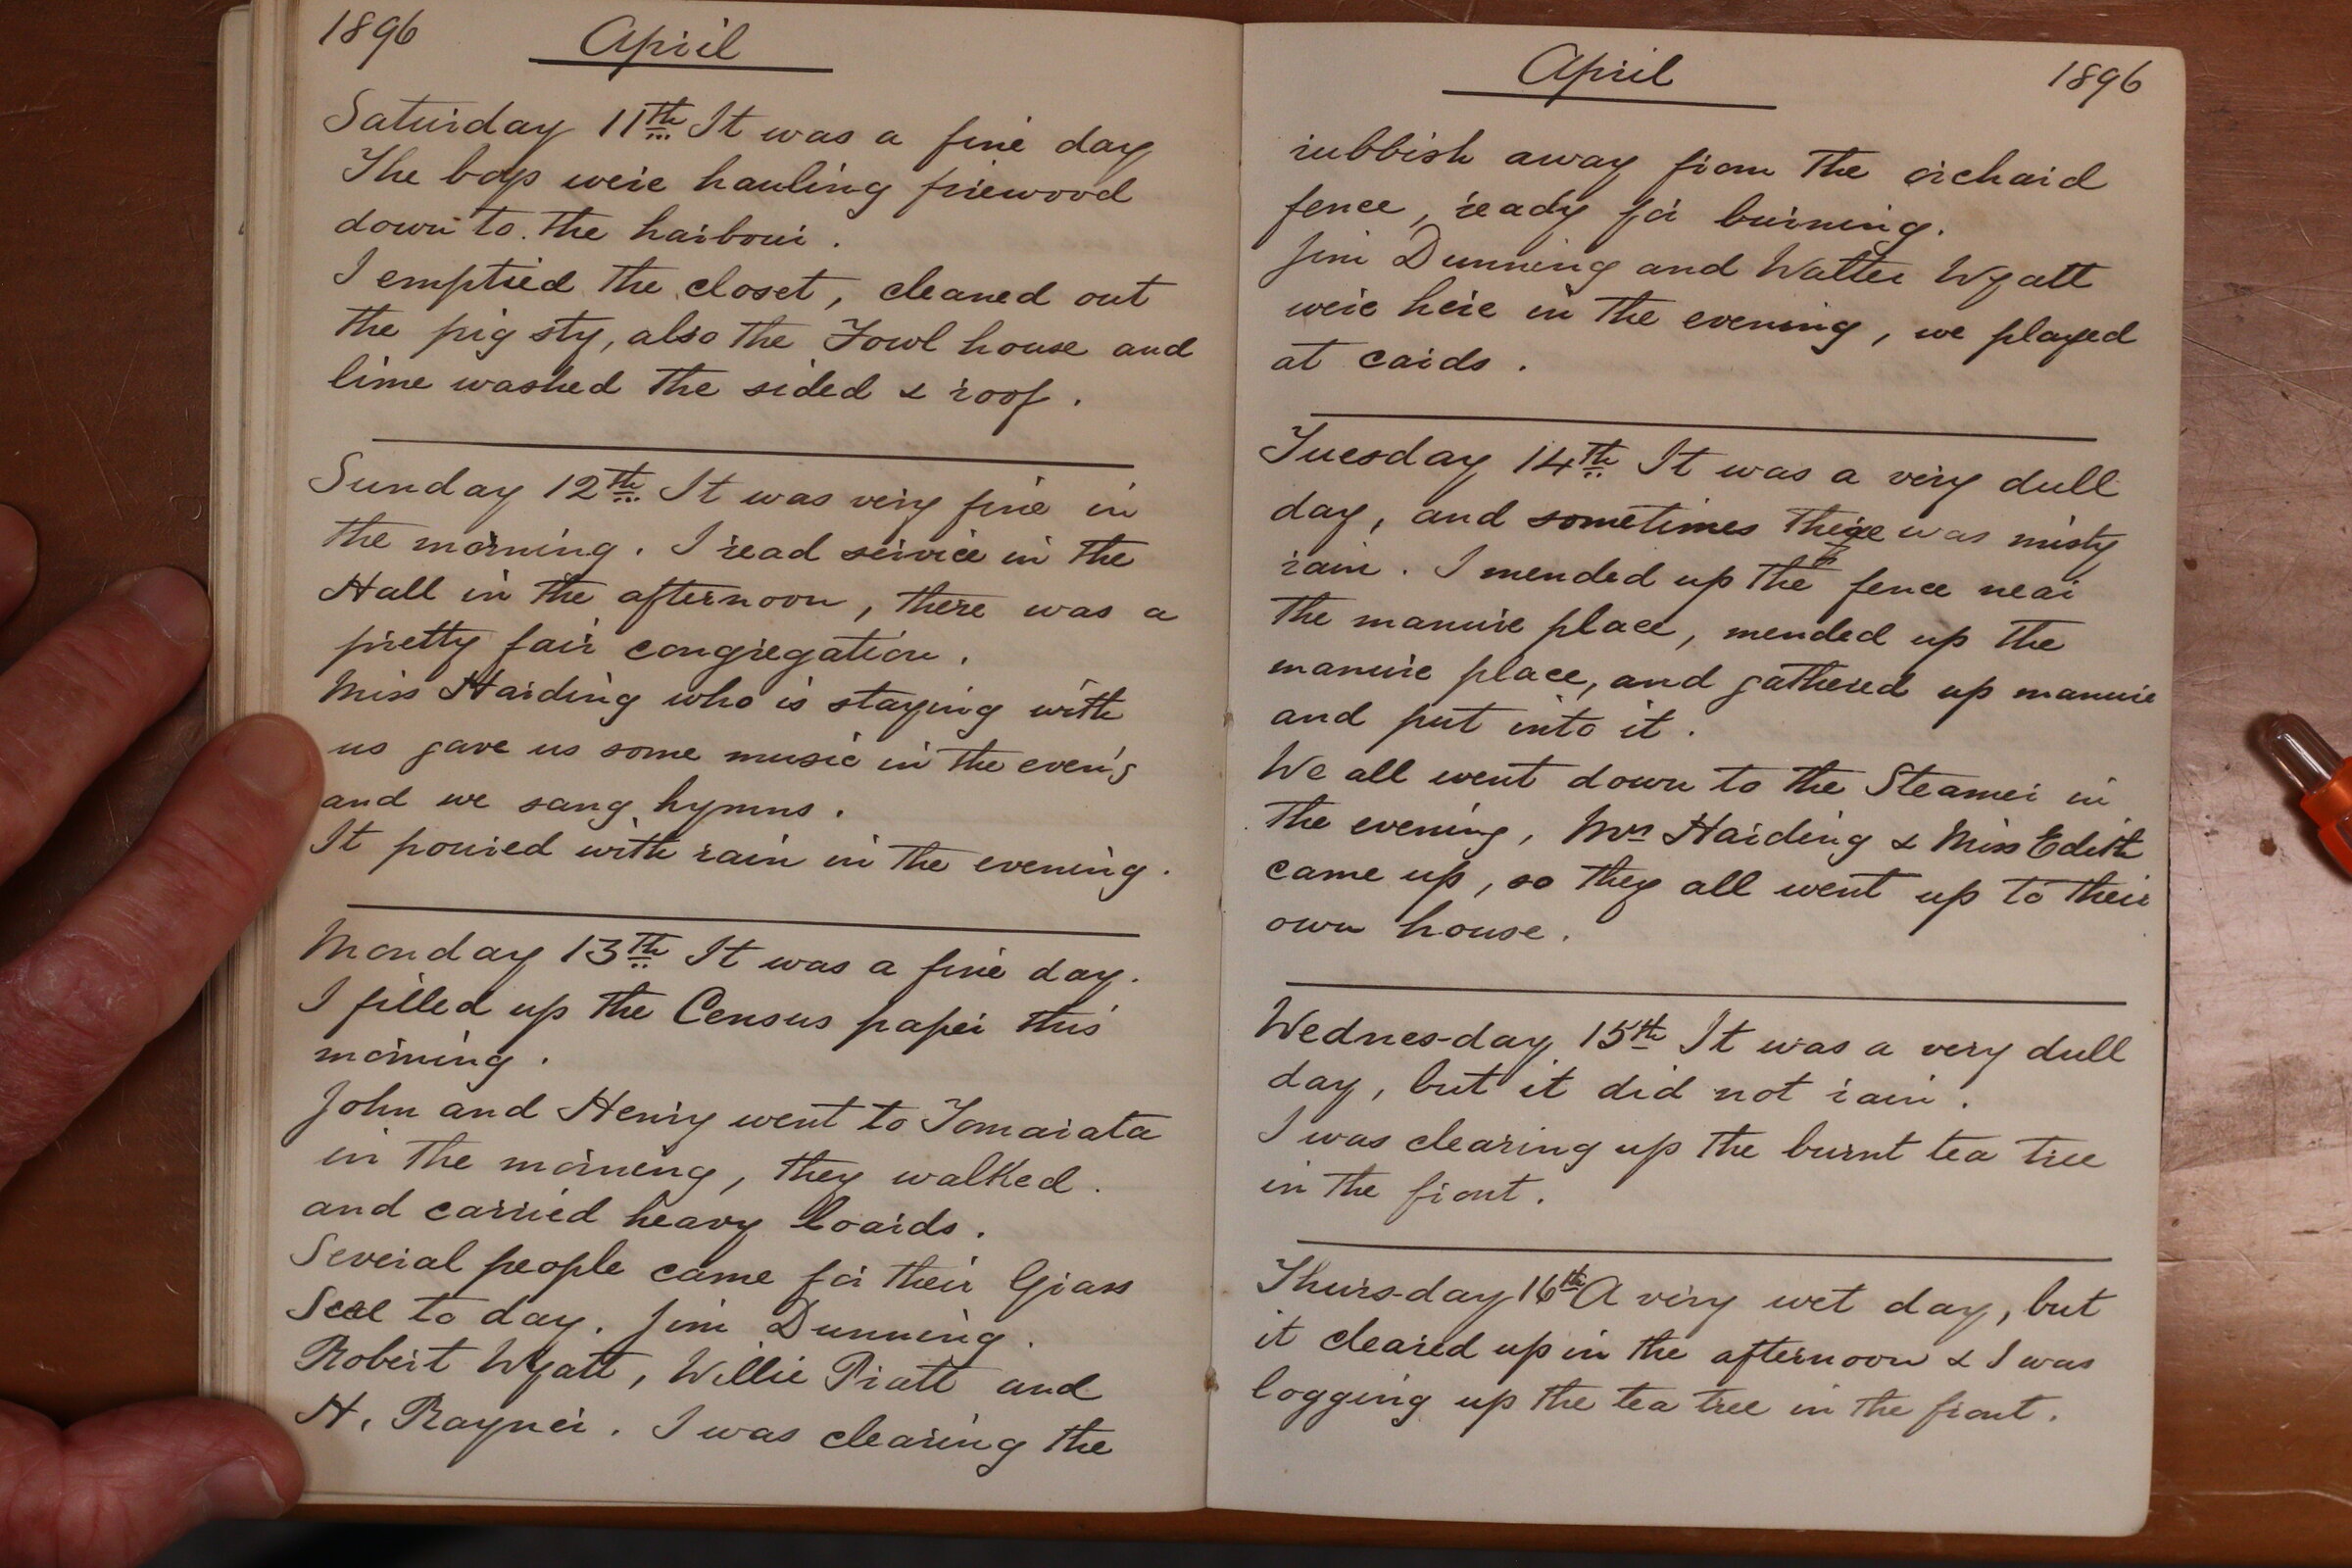 1896 April
Saturday 11th It was a fine day
The boys were hauling firewood
down to the harbour.
I emptied the closet, cleaned out
the pig sty, also the Fowl house and
lime washed the sided & roof.
Sunday 12th It was very fine in
the morning. I read service in the
Hall in the afternoon, there was a
pretty fair congregation.
Miss Harding who is staying with
us gave us some music in the even'g
and we sang hymns.
It poured with rain in the evening.
Monday 13th It was a fine day.
I filled up the Census paper this
morning.
John and Henry went to Tomarata
in the morning, they walked.
and carried heavy loards.
Several people came for their Grass
Seed to day. Jim Dunning.
Robert Wyatt, Willie Pratt and
H. Rayner. I was clearing the
April 1896
rubbish away from the orchard
fence, ready for burning.
Jim Dunning and Walter Wyatt
were here in the evening, we played
at cards.
Tuesday 14th It was a very dull
day, and sometimes there was misty
rain. I mended up the fence near
the manure place, mended up the
manure place, and gathered up manure
and put into it.
We all went down to the Steamer in
the evening, Mrs Harding & Miss Edith
came up, so they all went up to their
own house.
Wednes-day 15th It was a very dull
day, but it did not rain.
I was clearing up the burnt tea tree
in the front.
Thurs-day 16th A very wet day, but
it cleared up in the afternoon & I was
logging up the tea tree in the front.